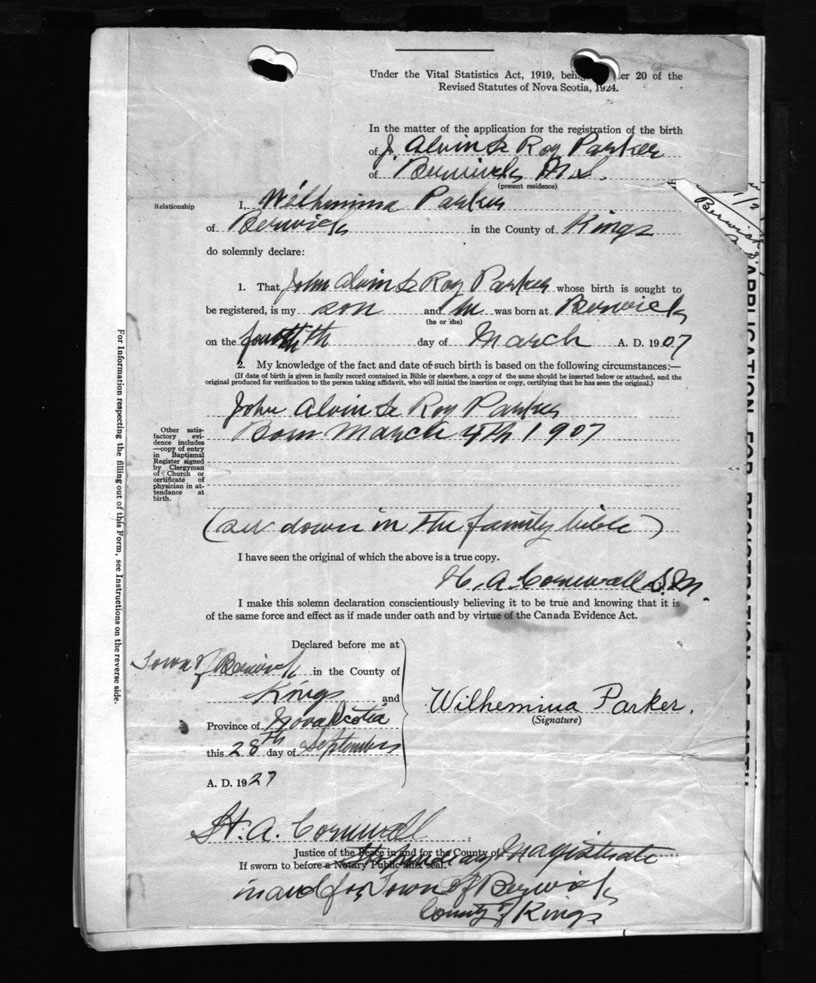 Under the Vital Statistics Act, 1919, being er 20 of the
Revised Statutes of Nova Scotia, 1924.
In the matter of the application for the registration of the birth
of J. Alvin Le Roy Parker
of Berwick N.S.
(present residence)
Berwick
Relationship
I, Wilhemina Parker
of Berwick in the County of Kings
do solemnly declare:
1. That John Alvin Le Roy Parker whose birth is sought to
be registered, is my son and he was born at Berwick
(he or she)
on the fourth day of March A. D. 1907
2. My knowledge of the fact and date of such birth is based on the following circumstances:—
(If date of birth is given in family record contained in Bible or elsewhere, a copy of the same should be inserted below or attached, and the
original produced for verification to the person taking affidavit, who will initial the insertion or copy, certifying that he has seen the original.)
John Alvin Le Roy Parker
Born March 4th 1907
Other satis-
factory evi-
dence includes
—copy of entry
in Baptismal
Register signed
by Clergyman
of Church or
certificate of
physician in at-
tendance at
birth.
(set down in the family bible)
I have seen the original of which the above is a true copy.
H. A. Cornwall S.M.
I make this solemn declaration conscientiously believing it to be true and knowing that it is
of the same force and effect as if made under oath and by virtue of the Canada Evidence Act.
Declared before me at
Town of Berwick in the County of
Kings and
Province of Nova Scotia
this 28th day of September
A. D. 1927
Wilhemina Parker.
(Signature)
H. A. Cornwall
Justice of the Peace in and for the County of
Stipendiary Magistrate
If sworn to before a Notary Public affix seal.
in and for Town of Berwick
County of Kings
For Information respecting the filling out of this Form, see Instructions on the reverse side.
APPLICATION FOR REGISTRATION OF BIRTH